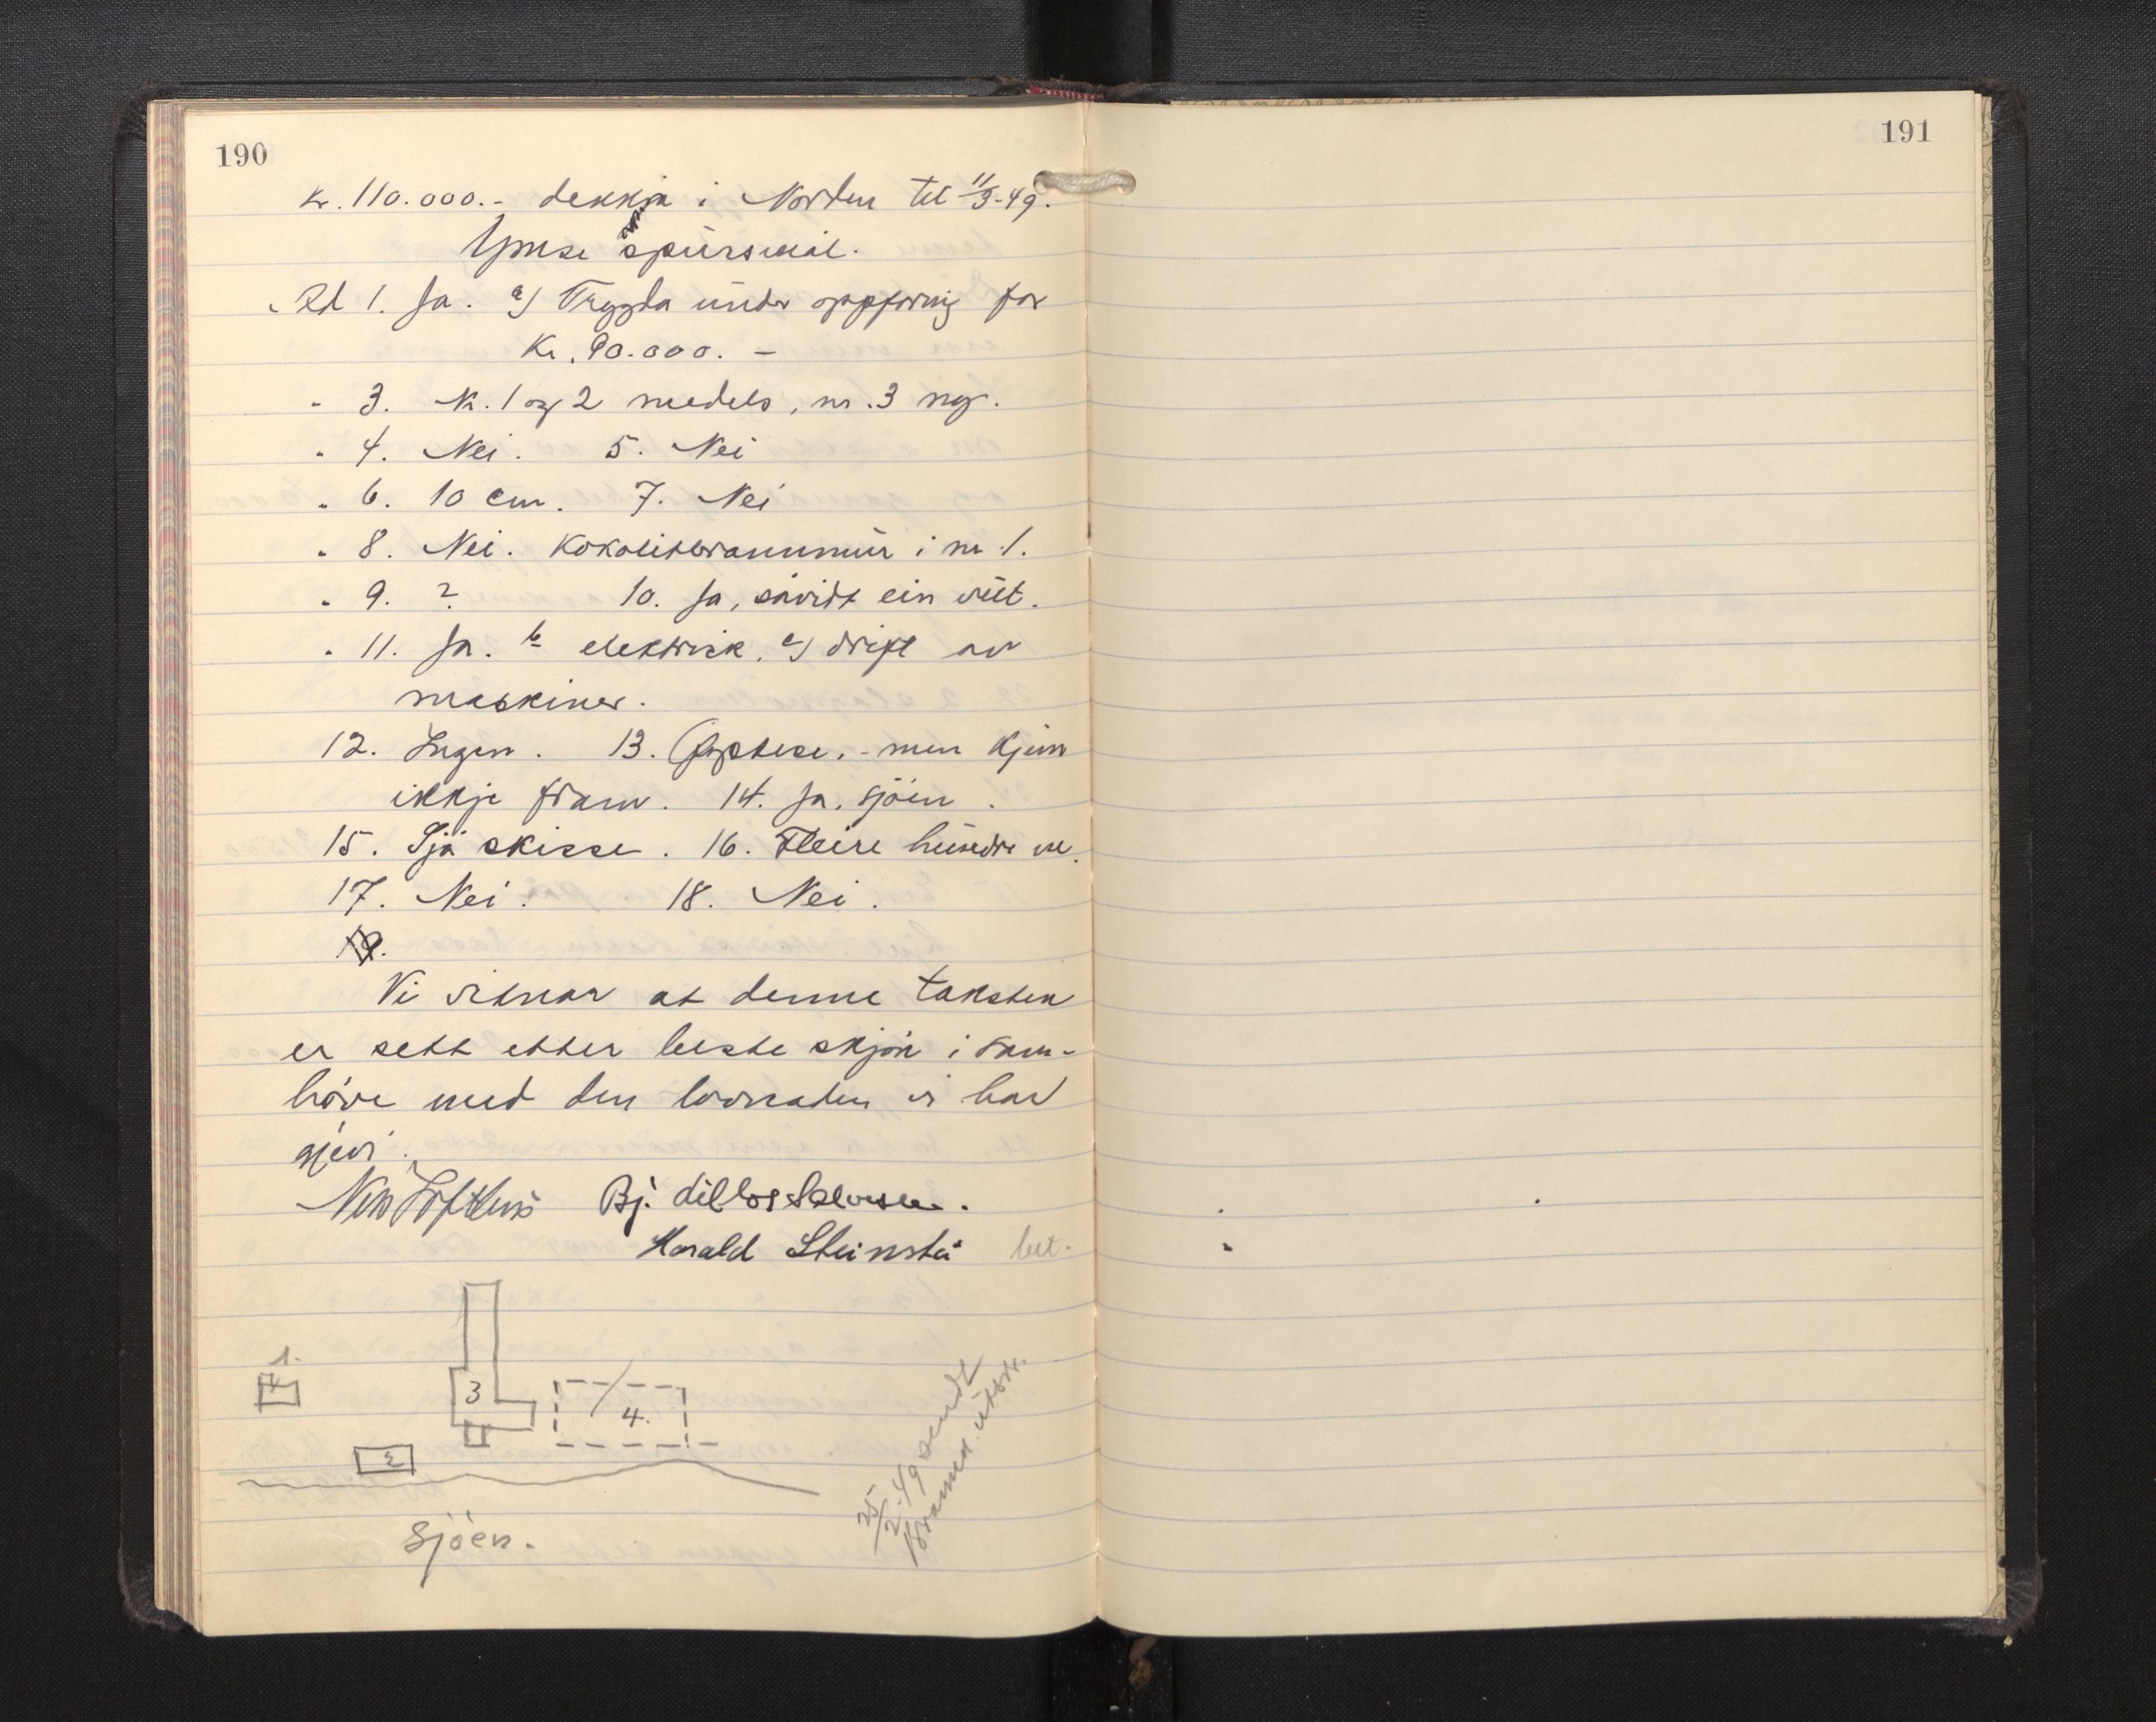 190
191
Kr. 110.000.- dekkja i Norden til 11/3-49.
Ymse spursmål.
Ad 1. Ja. a) Trygda under oppføring for
Kr. 90.000. -
" 3. Nr. 1 og 2 medels, nr. 3 ny.
" 4. Nei. 5. Nei
" 6. 10 cm. 7. Nei
" 8. Nei. Kokolitbrannmur i nr. 1.
" 9. ? 10. Ja, såvidt ein veit.
" 11. Ja. b elektrisk, c) drift av
maskiner.
12. Ingen. 13. - men kjem
ikkje fram. 14. Ja, sjöen.
15. Sjå skisse. 16. Fleire hundre m.
17. Nei. 18. Nei.
19.
Vi vitnar at denne taksten
er sett etter beste skjön i sam-
höve med den lovnaden vi har
gjevi.
Nils Lofthus Bj. Salvesen.
Harald Steinstø
1.
3
4.
2
Sjöen.
25/2-49 sendt